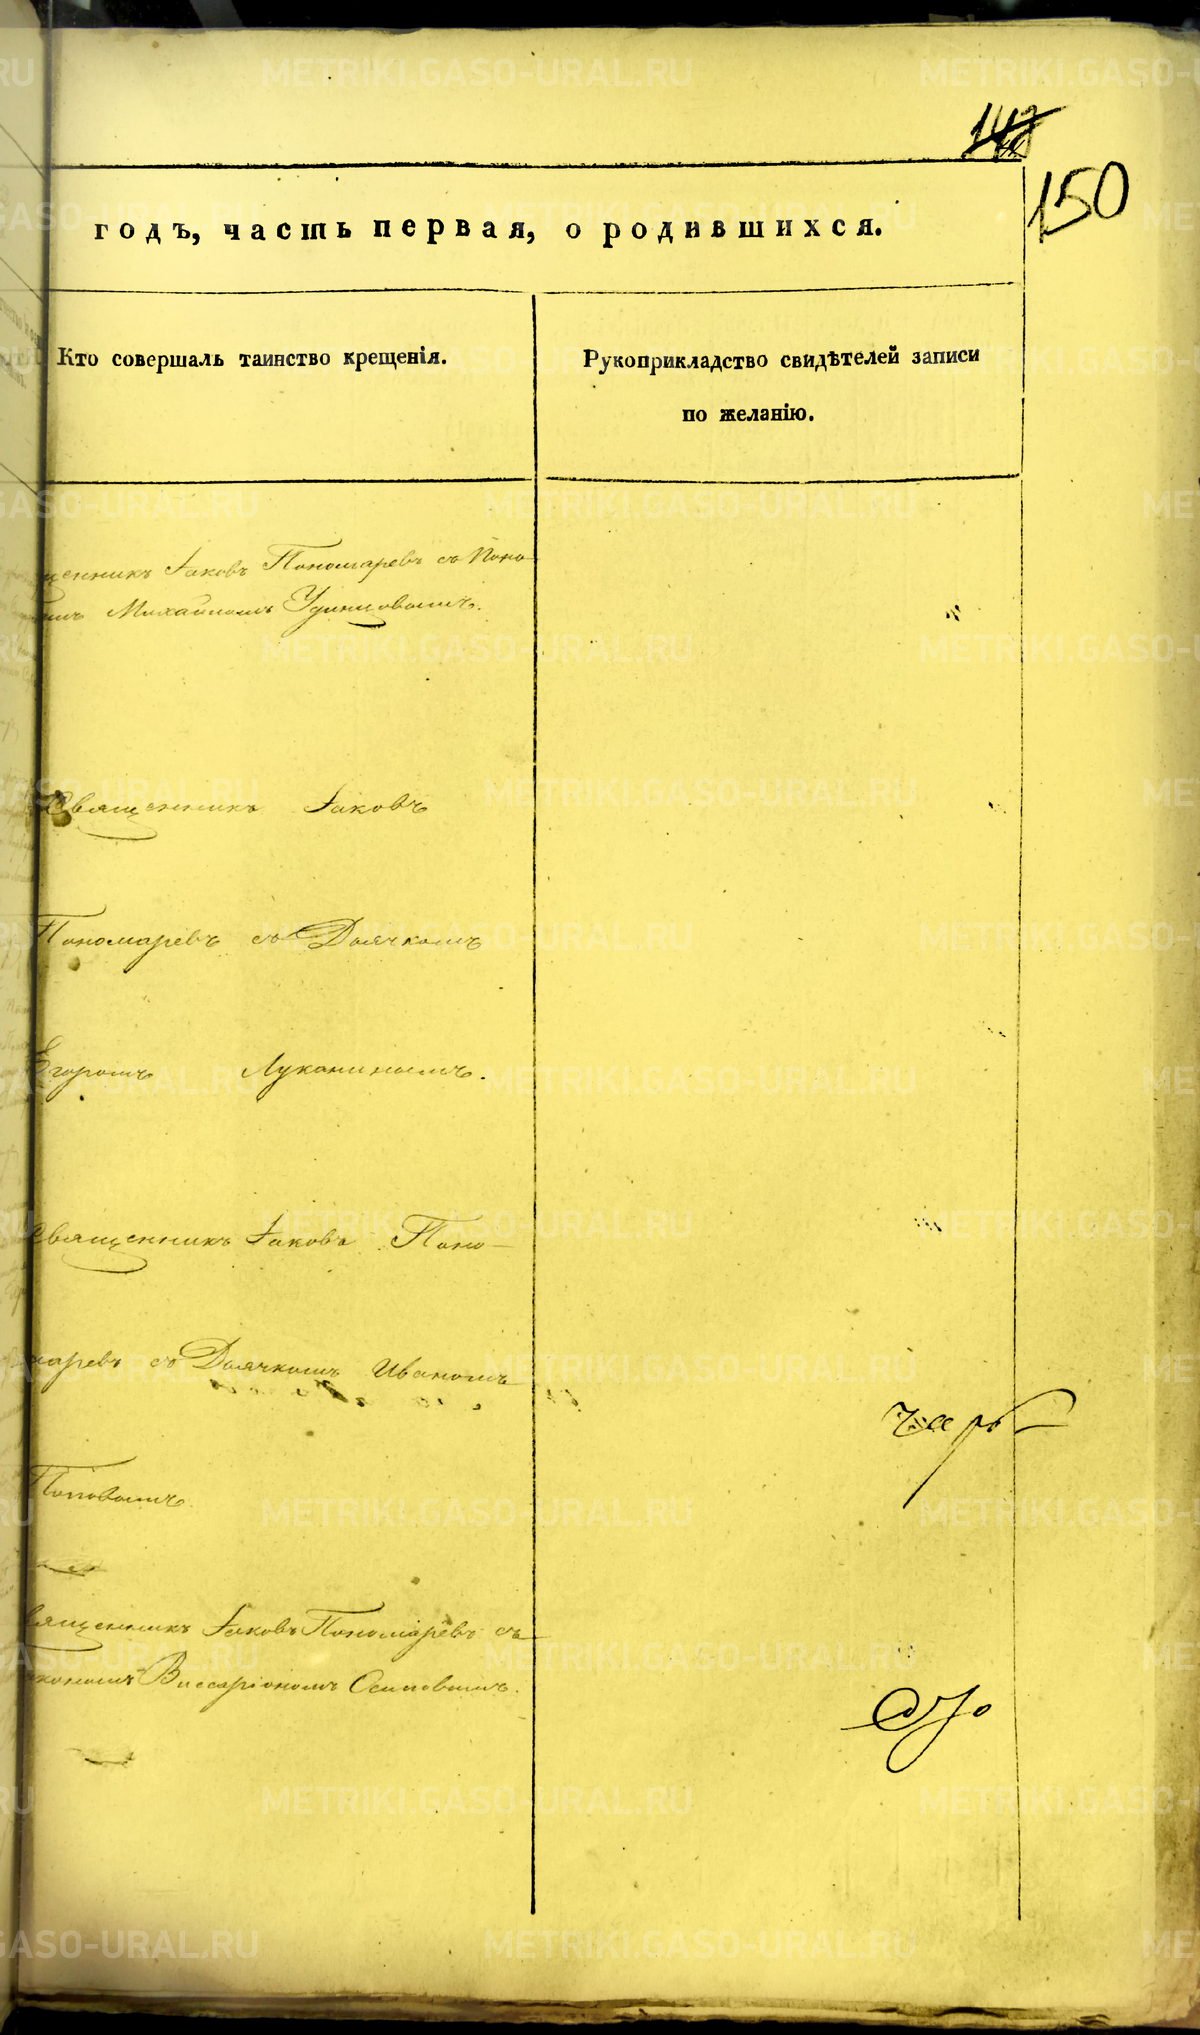 150
годъ, часть первая, о родившихся.
Кто совершалъ таинство крещенія.
Рукоприкладство свидѣтелей записи
по желанію.
щенникъ Іаковъ Пономаревъ съ Поно
Михаиломъ Удинцовымъ.
Священникъ Іаковъ
Пономаревъ съ Дьячкомъ
Егоромъ Луканинымъ.
Священникъ Іаковъ Поно-
маревъ съ Дьячкомъ Иваномъ
Поповымъ.
вященникъ Іаковъ Пономаревъ съ
кономъ Виссаріономъ Осиповымъ.
METRIKI.GASO-URAL.RU